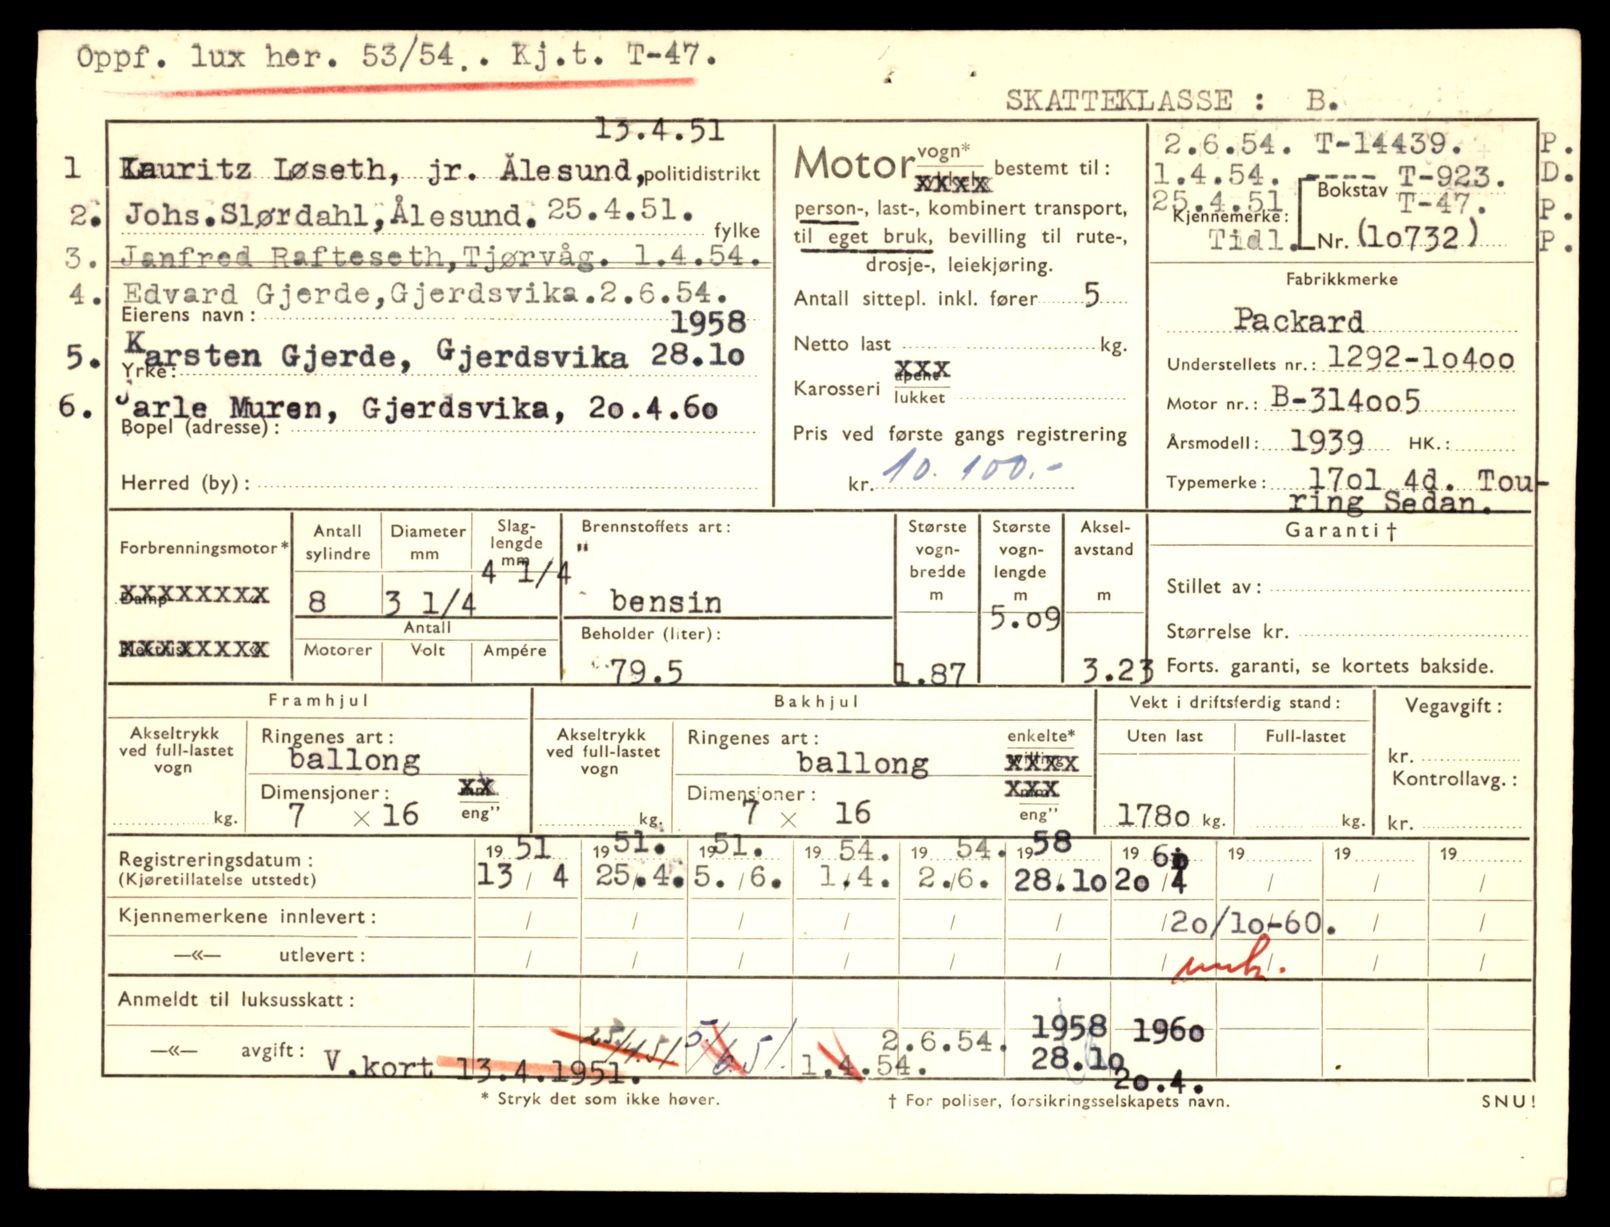 Oppf. lux her. 53/54.. Kj.t. T-47.
SKATTEKLASSE : B.
13.4.51
1 Lauritz Løseth, jr. Ålesund, politidistrikt
2. Johs.Slørdahl,Ålesund. 25.4.51. fylke
3. Janfred Rafteseth,Tjørvåg. 1.4.54.
4. Edvard Gjerde,Gjerdsvika.2.6.54.
Eierens navn :
1958
5. Karsten Gjerde, Gjerdsvika 28.1o
Yrke:
6. Jarle Muren, Gjerdsvika, 2o.4.6o
Bopel (adresse) :
Herred (by) :
Motor vogn* xxxx bestemt til :
person-, last-, kombinert transport,
til eget bruk, bevilling til rute-,
drosje-, leiekjøring.
Antall sittepl. inkl. fører 5
Netto last kg.
Karosseri xxx åpent lukket
Pris ved første gangs registrering
kr. 10.100.-
2.6.54. T-14439. P.
1.4.54. ---- T-923. D.
25.4.51 Bokstav T-47. P.
Kjennemerke:
Tidl. Nr. (1o732) P.
Fabrikkmerke
Packard
Understellets nr.: 1292-1o4oo
Motor nr.: B-314oo5
Årsmodell: 1939 HK.:
Typemerke: 17o1 4d. Tou-
ring Sedan.
Forbrenningsmotor*
xxxxxxxx Damp
xxxxxxxx
Antall sylindre
8
Diameter mm
3 1/4
Slag-lengde mm
4 1/4
Antall
Motorer Volt Ampére
Brennstoffets art :
"
bensin
Beholder (liter) :
79.5
Største vogn-bredde m
1.87
Største vogn-lengde m
5.o9
Aksel-avstand m
3.23
Garanti †
Stillet av :
Størrelse kr.
Forts. garanti, se kortets bakside.
Framhjul
Akseltrykk ved full-lastet vogn
kg.
Ringenes art :
ballong
Dimensjoner : xx
7 × 16 eng"
Bakhjul
Akseltrykk ved full-lastet vogn
kg.
Ringenes art : enkelte*
ballong xxxx
Dimensjoner : xxx
7 × 16 eng"
Vekt i driftsferdig stand :
Uten last Full-lastet
178o kg. kg.
Vegavgift :
kr.
Kontrollavg. :
kr.
Registreringsdatum : 19 51 19 51. 19 51. 19 54. 19 54. 19 58 19 6o 19 19 19
(Kjøretillatelse utstedt) 13 / 4 25.4. 5./6. 1.4. 2./6. 28.1o 2o /4 / / /
Kjennemerkene innlevert : / / / / / / / 2o/1o-6o. / /
—«— utlevert : / / / / / / / / / /
Anmeldt til luksusskatt :
—«— avgift : V.kort 13.4.1951. 25/4.51 5/6.51. 1.4.54. 2.6.54. 1958 28.1o 196o 2o.4.
* Stryk det som ikke høver.
† For poliser, forsikringsselskapets navn.
SNU!